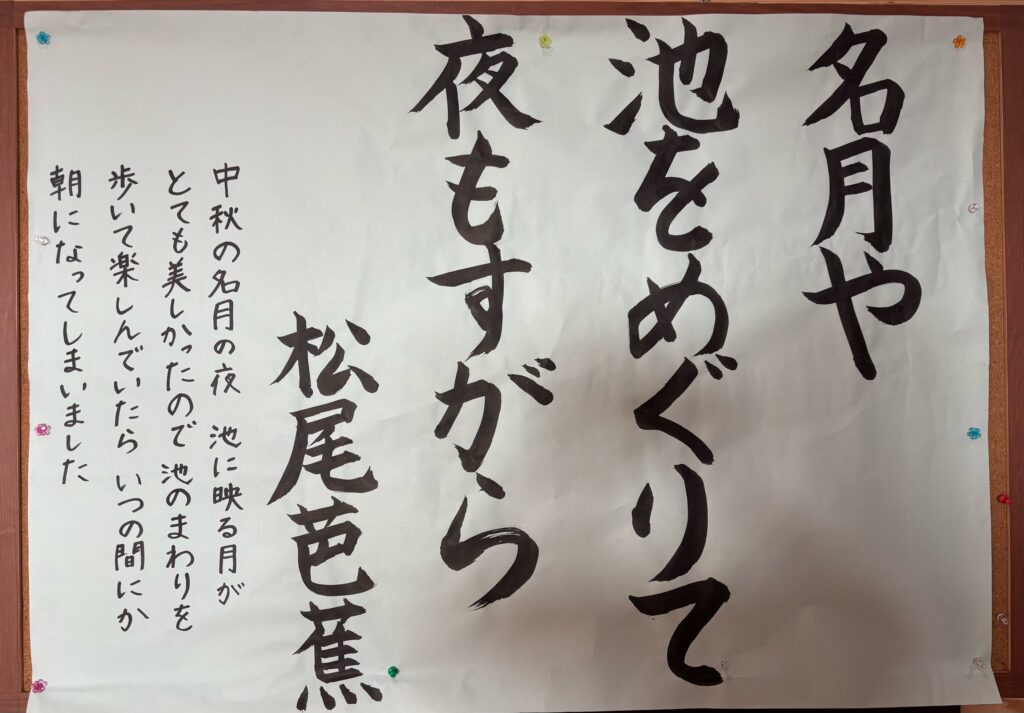 名月や
池をめぐりて
夜もすがら
松尾芭蕉
中秋の名月の夜 池に映る月が
とても美しかったので 池のまわりを
歩いて楽しんでいたら いつの間にか
朝になってしまいました